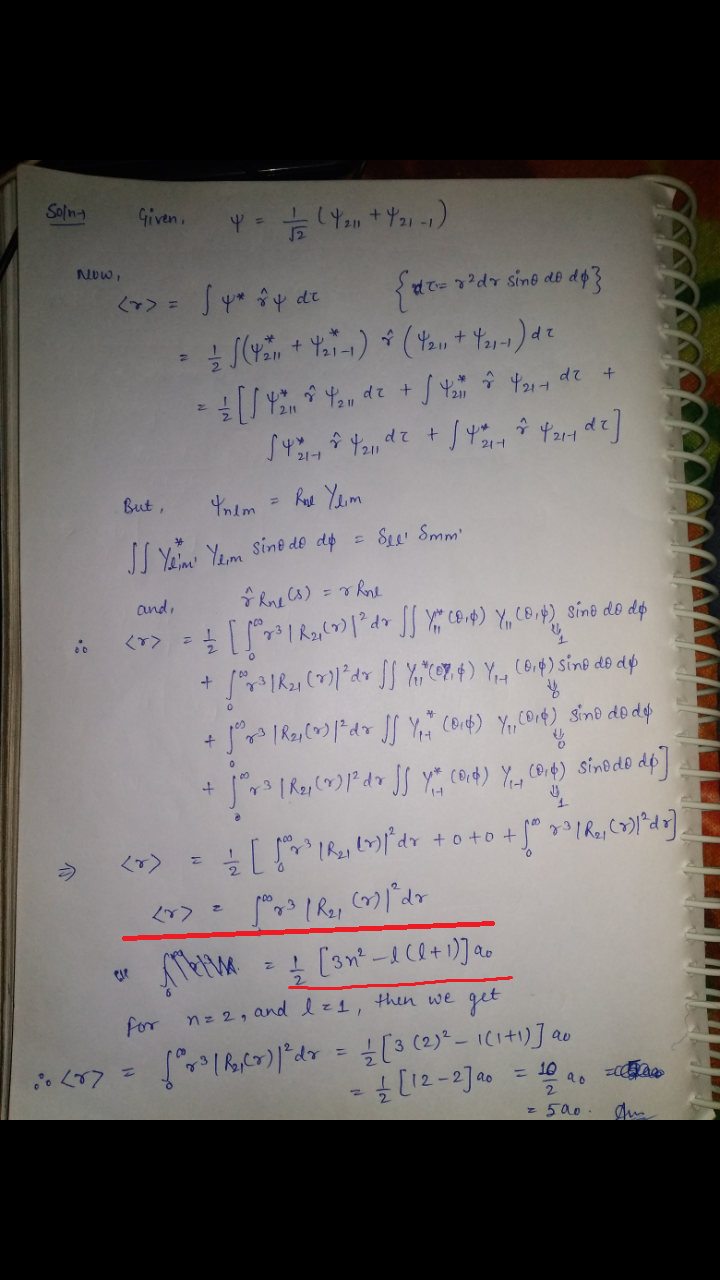 Soln→ Given, ψ = 1/√2 (ψ211 + ψ21-1)
Now,
<r> = ∫ψ* r̂ ψ dτ {dτ = r²dr sinθ dθ dϕ}
= 1/2 ∫(ψ*211 + ψ*21-1) r̂ (ψ211 + ψ21-1) dτ
= 1/2 [∫ψ*211 r̂ ψ211 dτ + ∫ψ*211 r̂ ψ21-1 dτ +
∫ψ*21-1 r̂ ψ211 dτ + ∫ψ*21-1 r̂ ψ21-1 dτ]
But, ψnlm = Rnl Yl,m
∫∫ Y*l'm' Yl,m sinθ dθ dϕ = δll' δmm'
and, r̂ Rnl(r) = r Rnl
∴ <r> = 1/2 [∫0^∞ r³ |R21(r)|² dr ∫∫ Y11*(θ,ϕ) Y11(θ,ϕ) sinθ dθ dϕ
⇓ 1
+ ∫0^∞ r³ |R21(r)|² dr ∫∫ Y11*(θ,ϕ) Y1-1(θ,ϕ) sinθ dθ dϕ
⇓ 0
+ ∫0^∞ r³ |R21(r)|² dr ∫∫ Y1-1*(θ,ϕ) Y11(θ,ϕ) sinθ dθ dϕ
⇓ 0
+ ∫0^∞ r³ |R21(r)|² dr ∫∫ Y1-1*(θ,ϕ) Y1-1(θ,ϕ) sinθ dθ dϕ]
⇓ 1
⇒ <r> = 1/2 [∫0^∞ r³ |R21(r)|² dr + 0 + 0 + ∫0^∞ r³ |R21(r)|² dr]
<r> = ∫0^∞ r³ |R21(r)|² dr
= 1/2 [3n² - l(l+1)] a0
for n=2, and l=1, then we get
∴ <r> = ∫0^∞ r³ |R21(r)|² dr = 1/2 [3(2)² - 1(1+1)] a0
= 1/2 [12-2] a0 = 10/2 a0
= 5a0. Ans